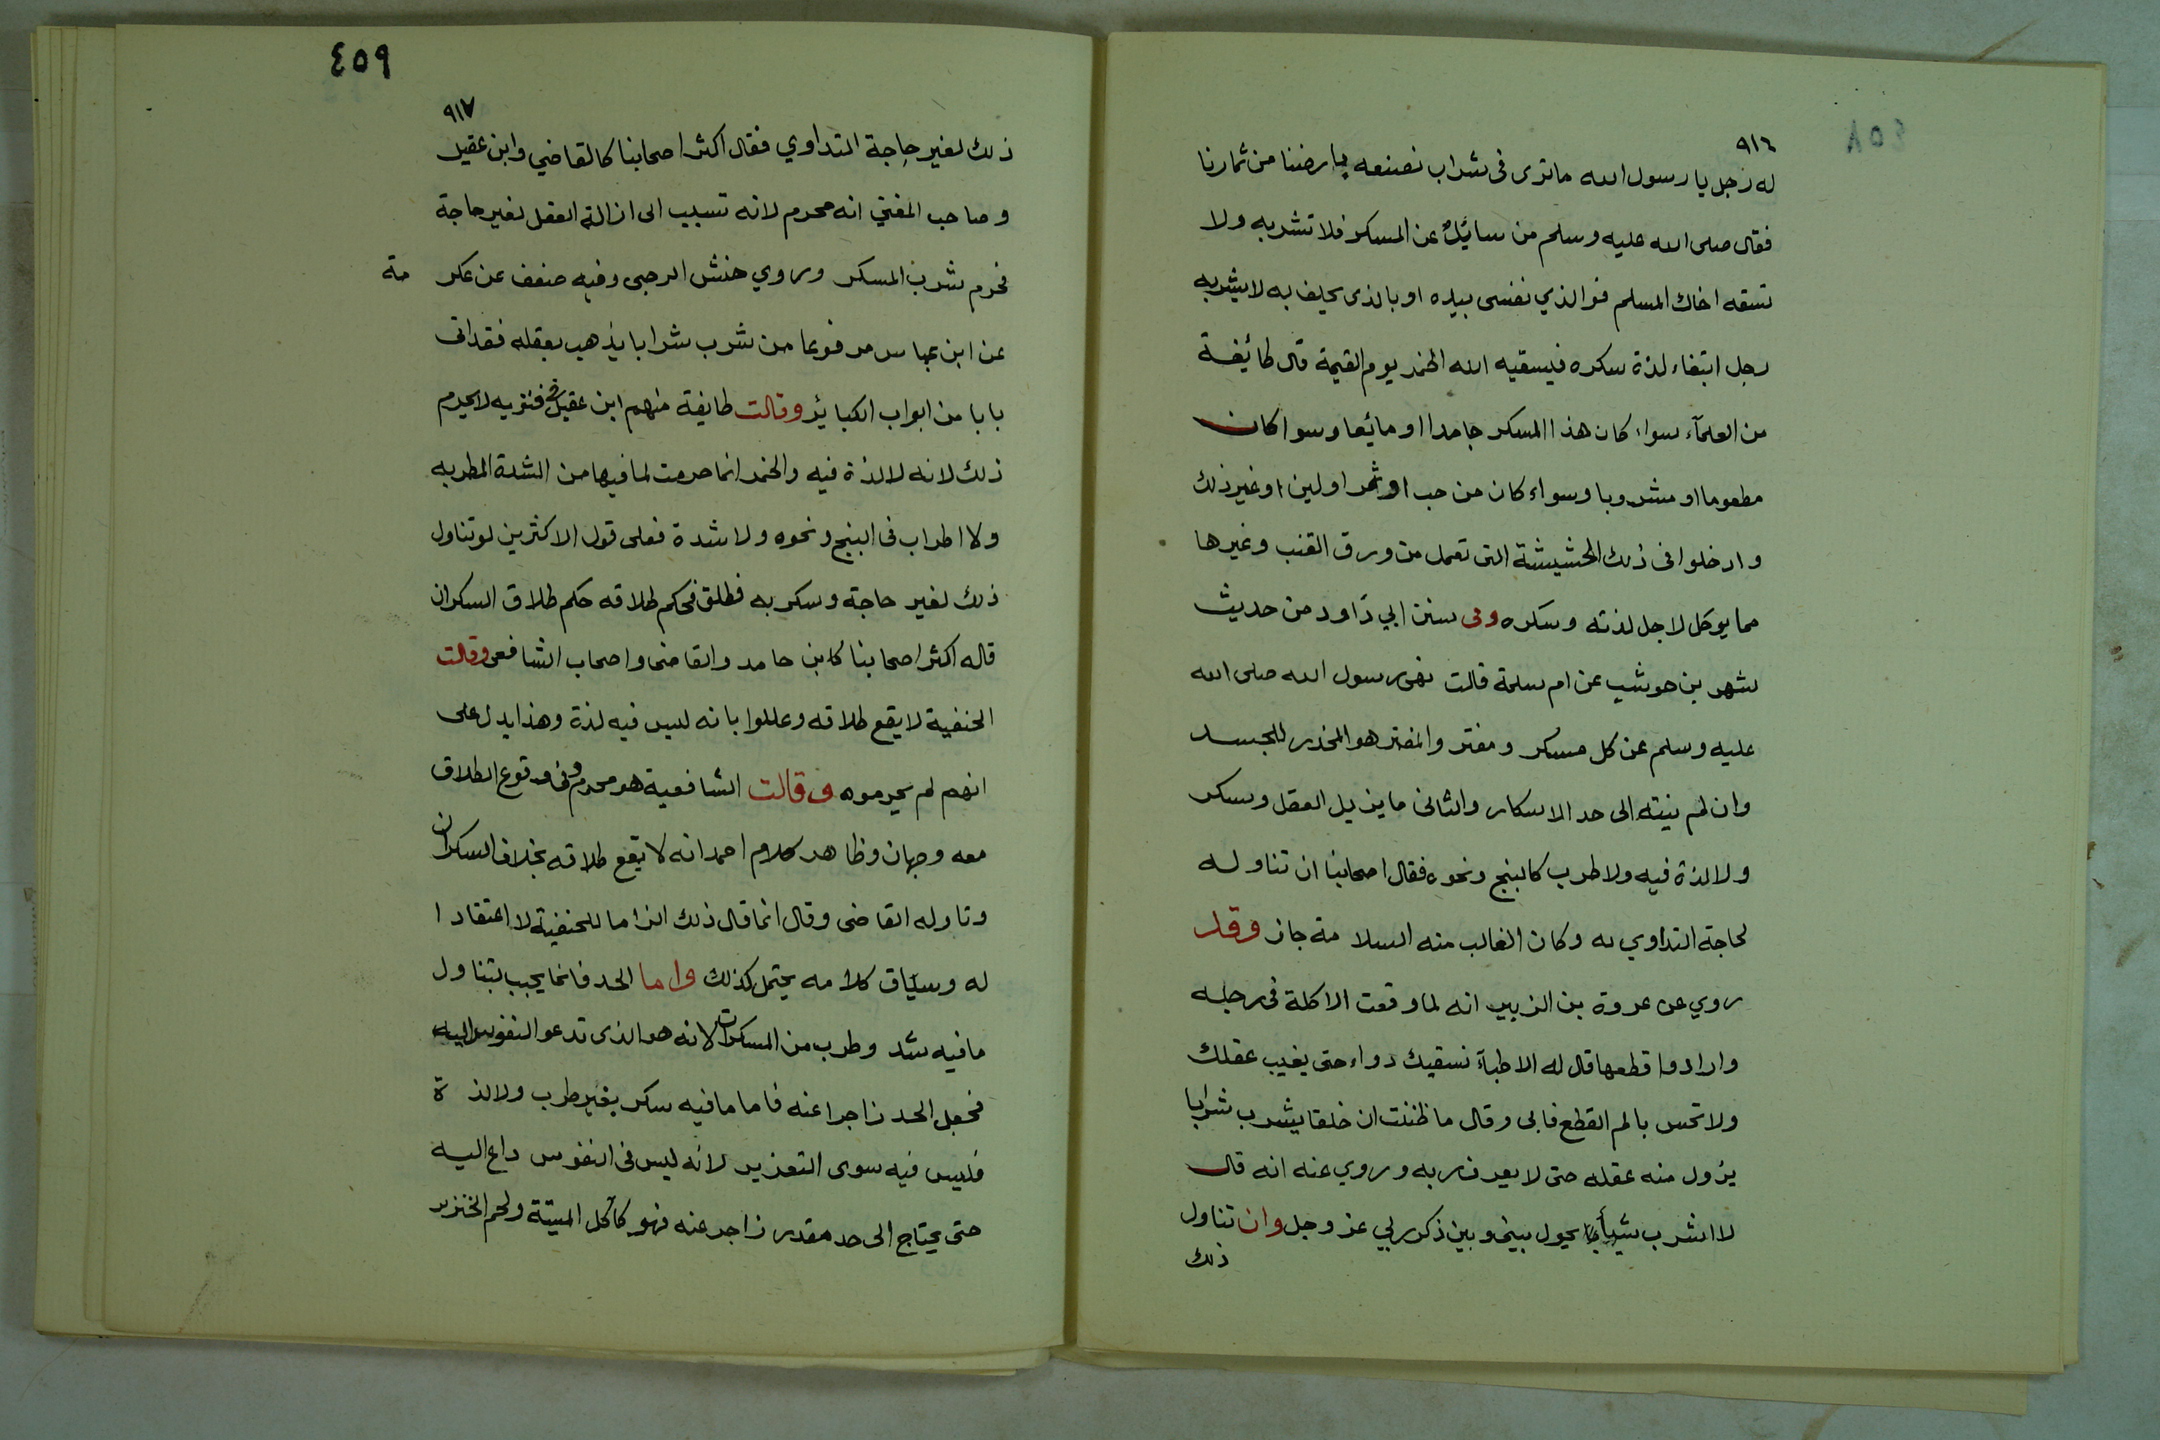 ٩١٦
له رجل يا رسول الله ما ترى فى شراب نصنعه بارضنا من ثمارنا
فقال صلى الله عليه وسلم من سائيلٌ عن المسكر فلا تشربه ولا
تسقه اخاك المسلم فوالذي نفسى بيده او بالذى يحلف به لا يشربه
رجل ابتغاء لذة سكره فيسقيه الله الخمر يوم القيمة قال طائيفة
من العلمآء سواء كان هذا المسكر جامدا او مائيعا وسوا كان
مطعوما او مشروبا وسواء كان من حب او ثمر او لبن او غير ذلك
وادخلوا فى ذلك الحشيشة التى تعمل من ورق القنب وغيرها
مما يوكل لاجل لذته وسكره وفى سنن ابي داود من حديث
شهر بن حوشب عن ام سلمة قالت نهى رسول الله صلى الله
عليه وسلم عن كل مسكر ومفتر والمفتر هو المخدر للجسد
وان لم ينته الى حد الاسكار والثانى ما يزيل العقل وسكر
ولا لذة فيه ولا طرب كالبنج ونحوه فقال اصحابنا ان تناوله
لحاجة التداوي به وكان الغالب منه السلامة جاز وقد
روي عن عروة بن الزبير انه لما وقعت الاكلة فى رجله
وارادوا قطعها قال له الاطبآ نسقيك دواء حتى يغيب عقلك
ولا تحس بالم القطع فابى وقال ما ظننت ان خلقا يشرب شرابا
يزول منه عقله حتى لا يعرف ربه وروي عنه انه قال
لا اشرب شيأ يحول بينى وبين ذكر ربي عز وجل وان تناول
ذلك
٤٥٩
٩١٧
ذلك لغير حاجة التداوي فقال اكثر اصحابنا كالقاضي وابن عقيل
وصاحب المغني انه محرم لانه تسبب الى ازالة العقل لغير حاجة
فحرم شرب المسكر وروي حنش الرحبى وفيه ضعف عن عكر مة
عن ابن عباس مرفوعا من شرب شرابا يذهب بعقله فقد اتى
بابا من ابواب الكبائر وقالت طايفة منهم ابن عقيل فى فنونه لا يحرم
ذلك لانه لا لذة فيه والخمر انما حرمت لما فيها من الشدة المطربه
ولا اطراب فى البنج ونحوه ولا شدة فعلى قول الاكثرين لو تناول
ذلك لغير حاجة وسكر به فطلق فحكم طلاقه حكم طلاق السكران
قاله اكثر اصحابنا كابن حامد والقاضى واصحاب الشافعى وقالت
الحنفية لا يقع طلاقه وعللوا بانه ليس فيه لذة وهذا يدل على
انهم لم يحرموه وقالت الشافعية هو محرم وفى وقوع الطلاق
معه وجهان وظاهر كلام احمد انه لا يقع طلاقه بخلاف السكران
وتاوله القاضى وقال انما قال ذلك الزاما للحنفية لا اعتقادا
له وسياق كلامه يحتمل كذلك واما الحد فانما يجب بتناول
ما فيه شد وطرب من المسكرات لانه هو الذى تدعو النفوس اليه
فجعل الحد زاجرا عنه فاما ما فيه سكر بغير طرب ولا لذ ة
فليس فيه سوى التعزير لانه ليس فى النفوس داع اليه
حتى يحتاج الى حد مقدر زاجر عنه فهو كاكل الميتة ولحم الخنزير